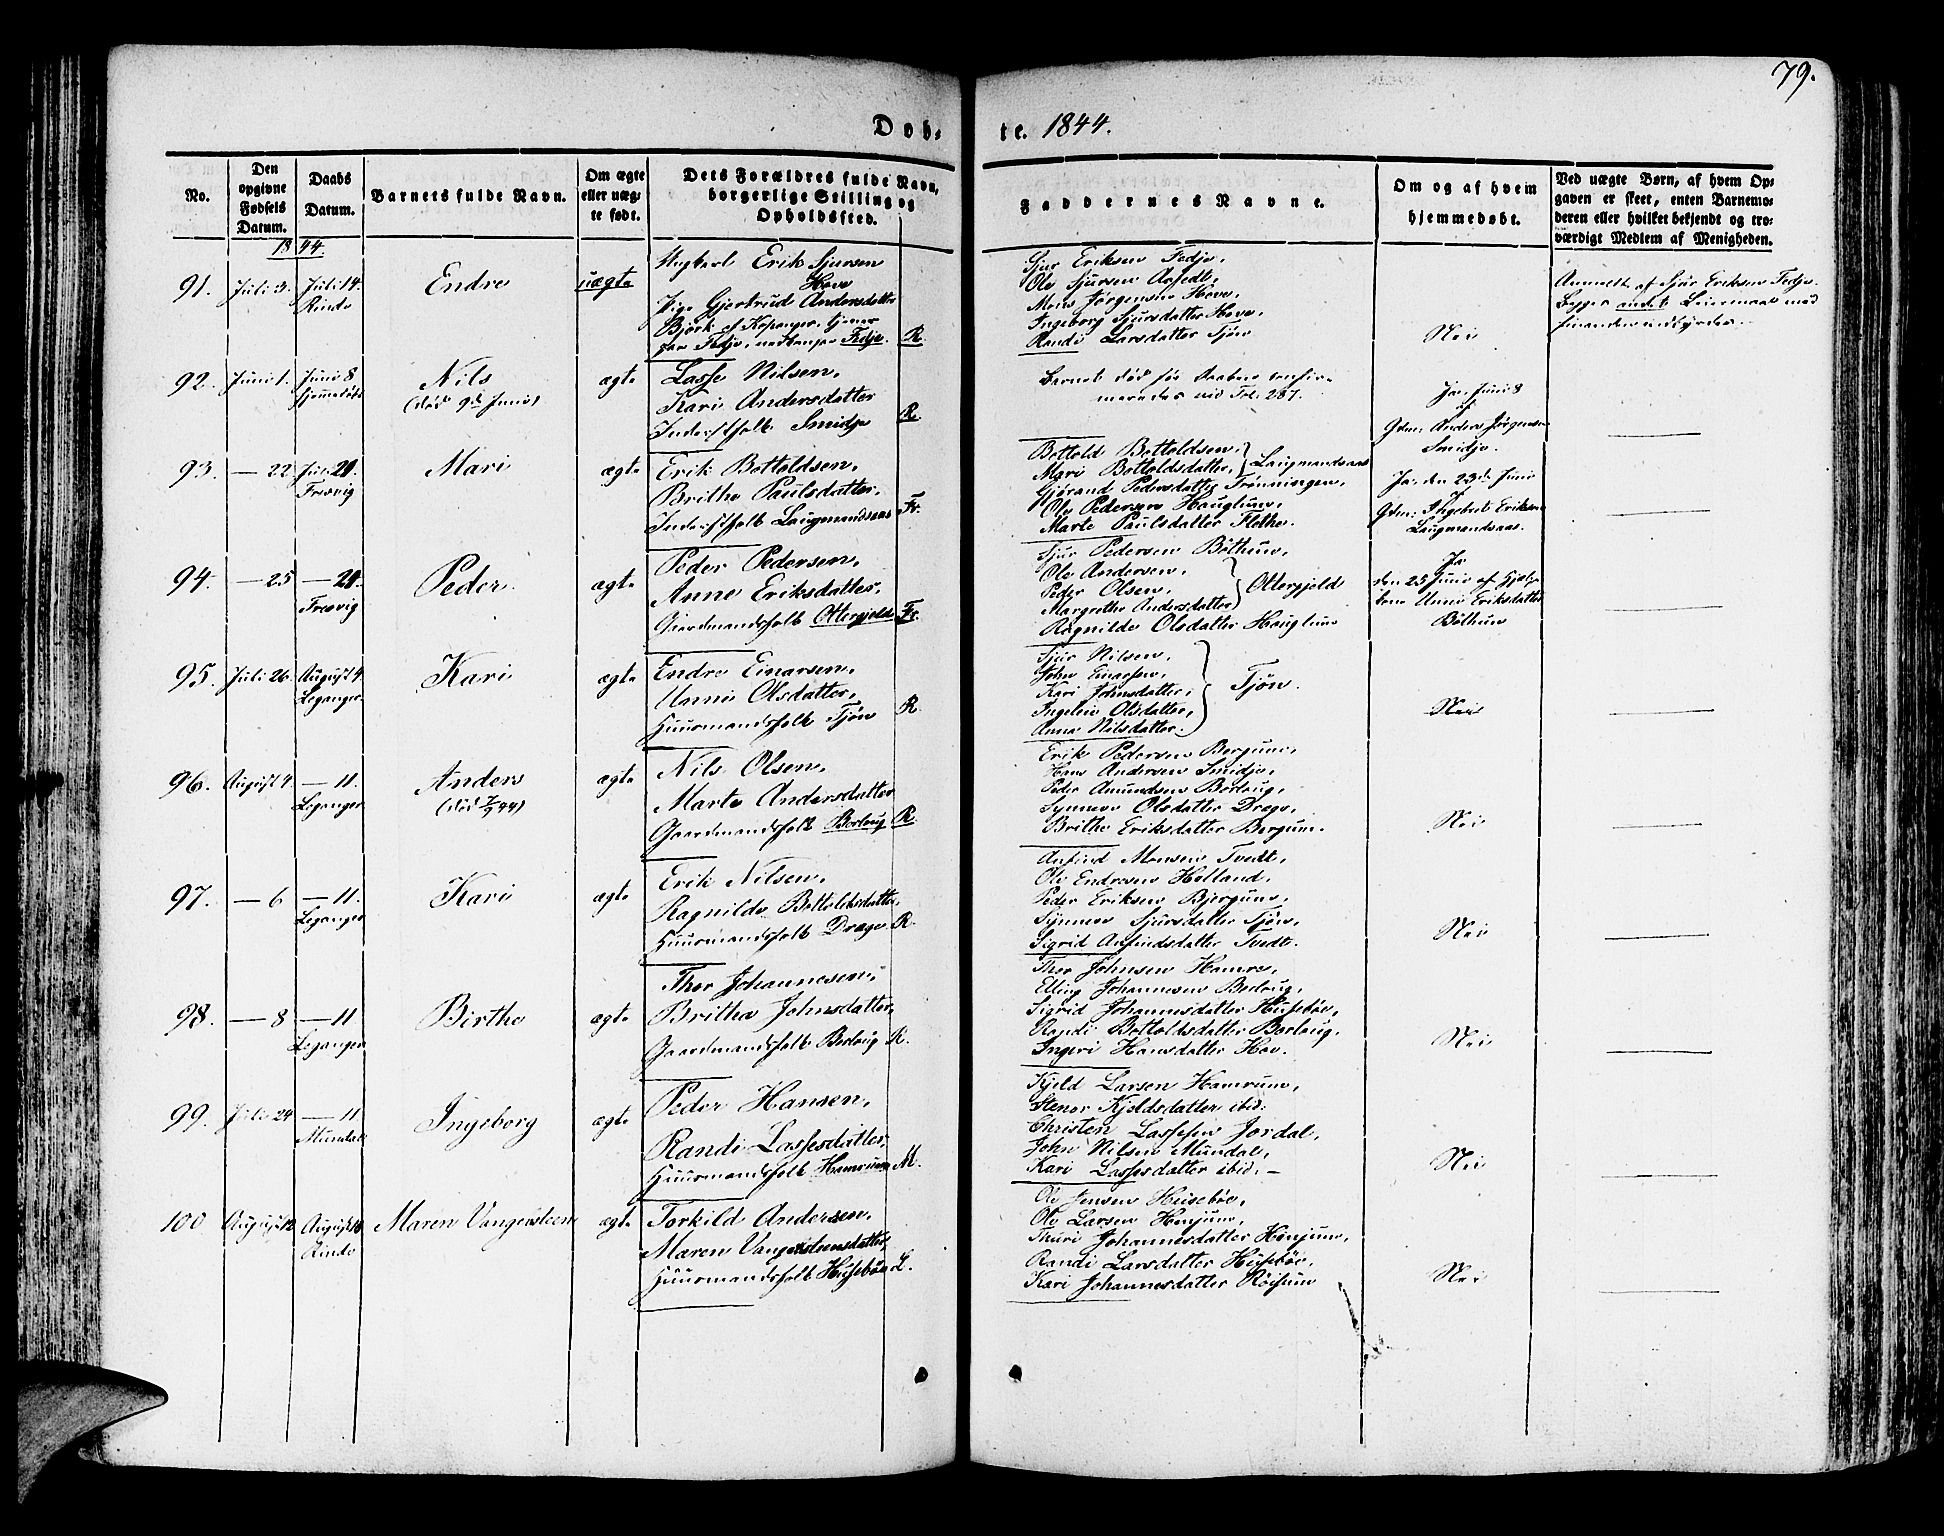 79.
Døb-
te. 1844.
No.
Den opgivne Fødsels Datum.
Daabs Datum.
Barnets fulde Navn.
Om ægte eller uæg-
te født.
Dets Forældres fulde Navn,
borgerlige Stilling og
Opholdssted.
Faddernes Navne.
Om og af hvem
hjemmedøbt.
Ved uægte Børn, af hvem Op-
gaven er skeet, enten Barnemo-
deren eller hvilket bekjendt og tro-
værdigt Medlem af Menigheden.
1844.
91. Juli 3. Juli 14. Rinde
Endre
uægte
Ungkarl Erik Sjursen
Hove
Pige Gjertrud Andersdatter
Bjørk af Kopanger, tjener
paa Fedje. R.
Sjur Eriksen Fedje,
Ole Sjursen
Mons Jørgensen Hove,
Ingeborg Sjursdatter Hove,
Randi Larsdatter Tjøn
Nei
Anmeldt af Sjur Eriksen Fedje.
Begges andet Leiermaal med
hinanden
92. Juni 1. Juni 8 Hjemmedøbt
Nils
(død 9d Juni)
ægte
Lasse Nilsen,
Kari Andersdatter
Inderstfolk Smidje R.
Barnet død før Daaben confir-
meredes vid Fol. 287.
Ja, Juni 8
af
Gdm: Anders Jørgensen
Smidje.
93. — 22 Juli 21. Fresvig
Mari
ægte
Erik Bottoldsen,
Brithe Paulsdatter,
Inderstfolk Laugmandsaas Fr.
Bottold Bottoldsen,
Mari Bottoldsdatter, } Laugmandsaas
Gjørand Pedersdatter Trønningen,
Ole Pedersen Hauglum,
Marte Paulsdatter Flethe.
Ja, den 23de Juni
af
Gdm: Ingebret Eriksen
Laugmandsaas.
94. — 25 — 21. Fresvig
Peder.
ægte
Peder Pedersen,
Anne Eriksdatter,
Gaardmandsfolk Ottergjeld Fr.
Sjur Pedersen Bøthun,
Ole Andersen,
Peder Olsen,
Margrethe Andersdatter } Ottergjeld
Ragnilde Olsdatter Hauglum
Ja
den 25 Juni af Hjelpe-
kone Unni Eriksdatter
Bøthun
95. Juli 26. August 4. Leganger
Kari
ægte
Endre Einarsen,
Unni Olsdatter,
Huusmandsfolk Tjøn R.
Sjur Nilsen,
John Einarsen,
Kari Johnsdatter,
Ingeleiv Olsdatter,
Anna Nilsdatter. } Tjøn.
Nei
96. August 4. — 11. Leganger
Anders
ægte
Nils Olsen,
Marte Andersdatter
Gaardmandsfolk Borlaug R.
Erik Pedersen Bergum,
Hans Andersen Smidje,
Peder Amundsen Borlaug,
Synneve Olsdatter Drege,
Brithe Eriksdatter Bergum.
Nei
97. — 6 — 11. Leganger
Kari
ægte
Erik Nilsen,
Ragnilde Bottoldsdatter,
Huusmandsfolk Drege. R.
Anfind Monsen Tvedt,
Ole Endresen Holland,
Peder Eriksen Bjergum,
Synneve Sjursdatter Tjøn,
Sigrid Anfindsdatter Tvedt.
Nei
98. — 8 — 11 Leganger
Birthe
ægte
Thor Johannesen,
Britha Johnsdatter,
Gaardmandsfolk Borlaug R.
Thor Johnsen Hamre,
Elling Johannesen Borlaug,
Sigrid Johannesdatter Husebøe,
Randi Bottoldsdatter Borlaug,
Ingeri Hansdatter Hov.
Nei
99. Juli 24 — 11 Mundal
Ingeborg
ægte
Peder Hansen,
Randi Lassesdatter
Huusmandsfolk Hamrum M.
Kjeld Larsen Hamrum,
Stenor Kjeldsdatter ibid:
Christen Lassesen Jordal,
John Nilsen Mundal,
Kari Lassesdatter ibid. —
Nei
100 August 12 August 18 Rinde
Maren Vangensteen
ægte
Torkild Andersen,
Maren Vangensteensdatter,
Huusmandsfolk Husebøe L.
Ole Jensen Husebøe,
Ole Larsen Henjum,
Thuri Johannesdatter Henjum,
Randi Larsdatter Husebøe,
Kari Johannesdatter Røisum
Nei